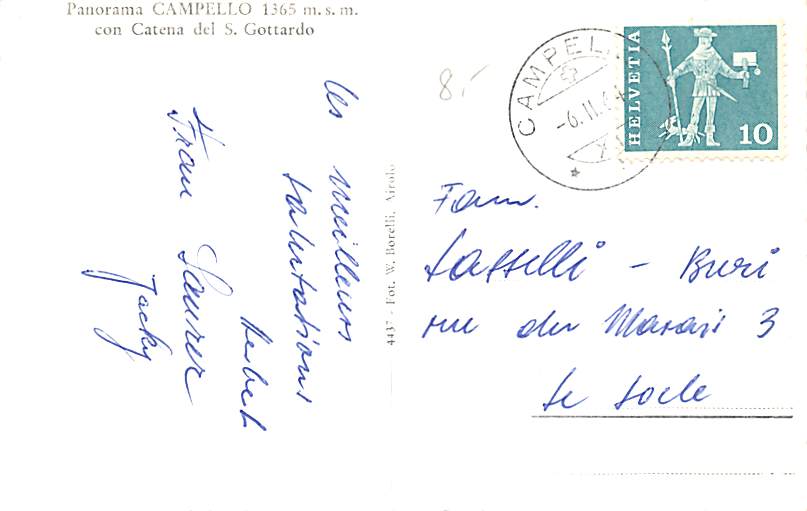 Panorama CAMPELLO 1365 m.s.m.
con Catena del S. Gottardo
les meilleurs
salutations
Herbert
Frau Saurer
Jacky
4437 - Fot. W. Borelli, Airolo
8.-
CAMPELLO
-6.II.64
HELVETIA
10
Fam.
Sasselli - Buri
rue du Marais 3
Le Locle